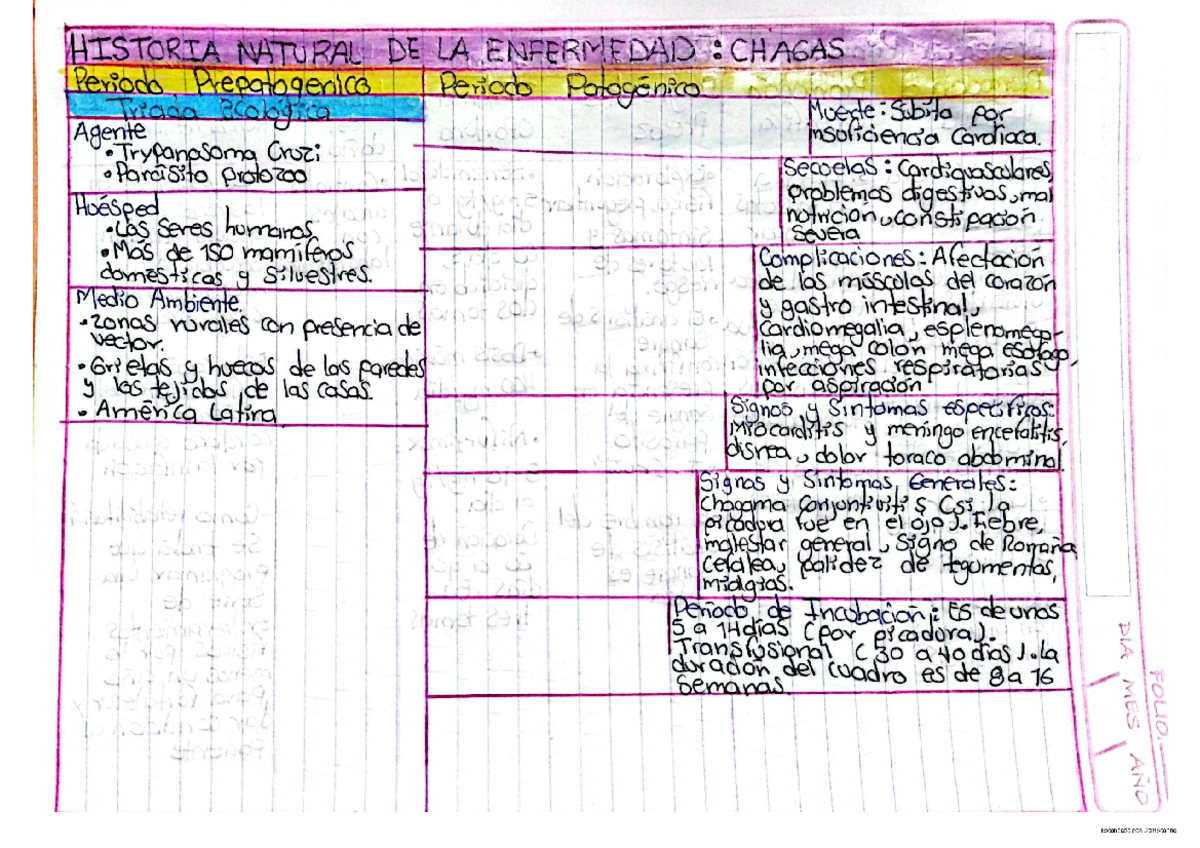 HISTORIA NATURAL DE LA ENFERMEDAD : CHAGAS
Periodo Prepatogenico
Periodo Patogénico
Triada Ecológica
Agente
• Trypanosoma Cruzi
• Parásito protozoo
Huésped
• Las seres humanos
• Más de 150 mamíferos
domésticas y silvestres.
Medio Ambiente.
• zonas rurales con presencia de
vector.
• Grietas y huecos de las paredes
y los tejidos de las casas.
• América Latina
Muerte: Subita por
insuficiencia Cardiaca.
Secuelas: Cardiovasculares,
problemas digestivas, mal
nutrición, constipación
severa
Complicaciones: Afectación
de las músculos del corazón
y gastro intestinal,
cardiomegalia, esplenomega-
lia, mega colón mega esófago,
infecciones respiratorias
por aspiración
Signos y Sintomas especificos:
Miocarditis y meningo encefalitis,
disnea, dolor toraco abdominal.
Signos y Sintomas Generales:
Chagoma Conjuntivitis (si la
picadura fue en el ojo). Fiebre,
malestar general, Signo de Romaña
Cefalea, palidez de tegumentos,
mialgias.
Periodo de Incubación: Es de unos
5 a 14 días (por picadura).
Transfusional (30 a 40 días). la
duración del cuadro es de 8 a 16
Semanas.
FOLIO:
DIA MES AÑO